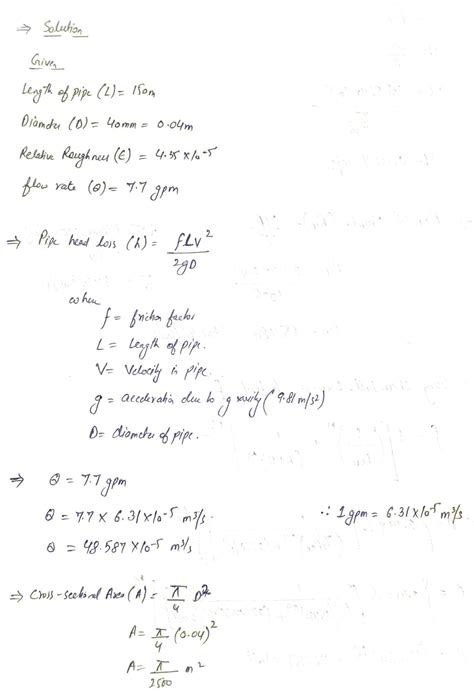 ⇒ Solution
Given
Length of pipe (L) = 150m
Diameter (D) = 40mm = 0.04m
Relative Roughness (ϵ) = 4.35 × 10⁻⁵
flow rate (Q) = 7.7 gpm
⇒ Pipe head loss (h) = fLV² / 2gD
where
f = friction factor
L = Length of pipe.
V = Velocity in pipe.
g = acceleration due to gravity (9.81 m/s²)
D = diameter of pipe.
⇒ Q = 7.7 gpm
Q = 7.7 × 6.31 × 10⁻⁵ m³/s ∵ 1 gpm = 6.31 × 10⁻⁵ m³/s
Q = 48.587 × 10⁻⁵ m³/s
⇒ Cross-sectional Area (A) = π/4 D²
A = π/4 (0.04)²
A = π/2500 m²